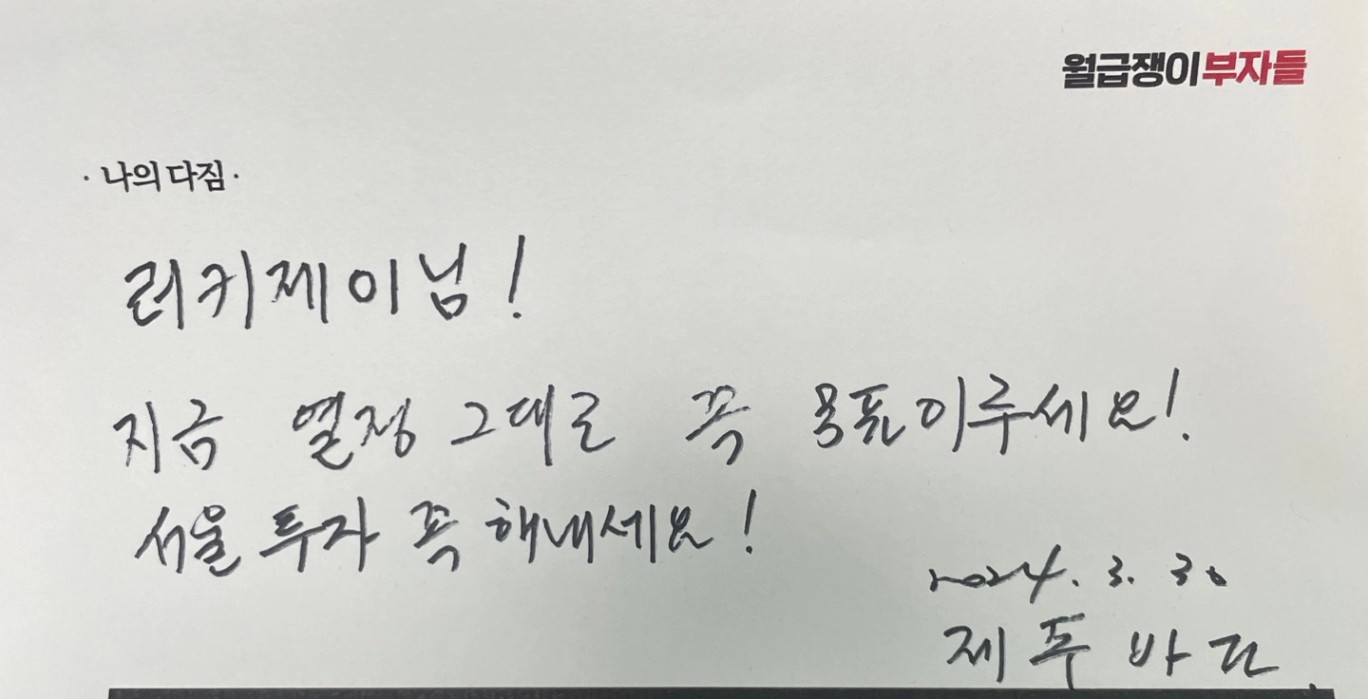 월급쟁이부자들
· 나의 다짐 ·
러키제이님!
지금 열정 그대로 꼭 목표이루세요!
서울 투자 꼭 해내세요!
2024. 3. 30
제주바다